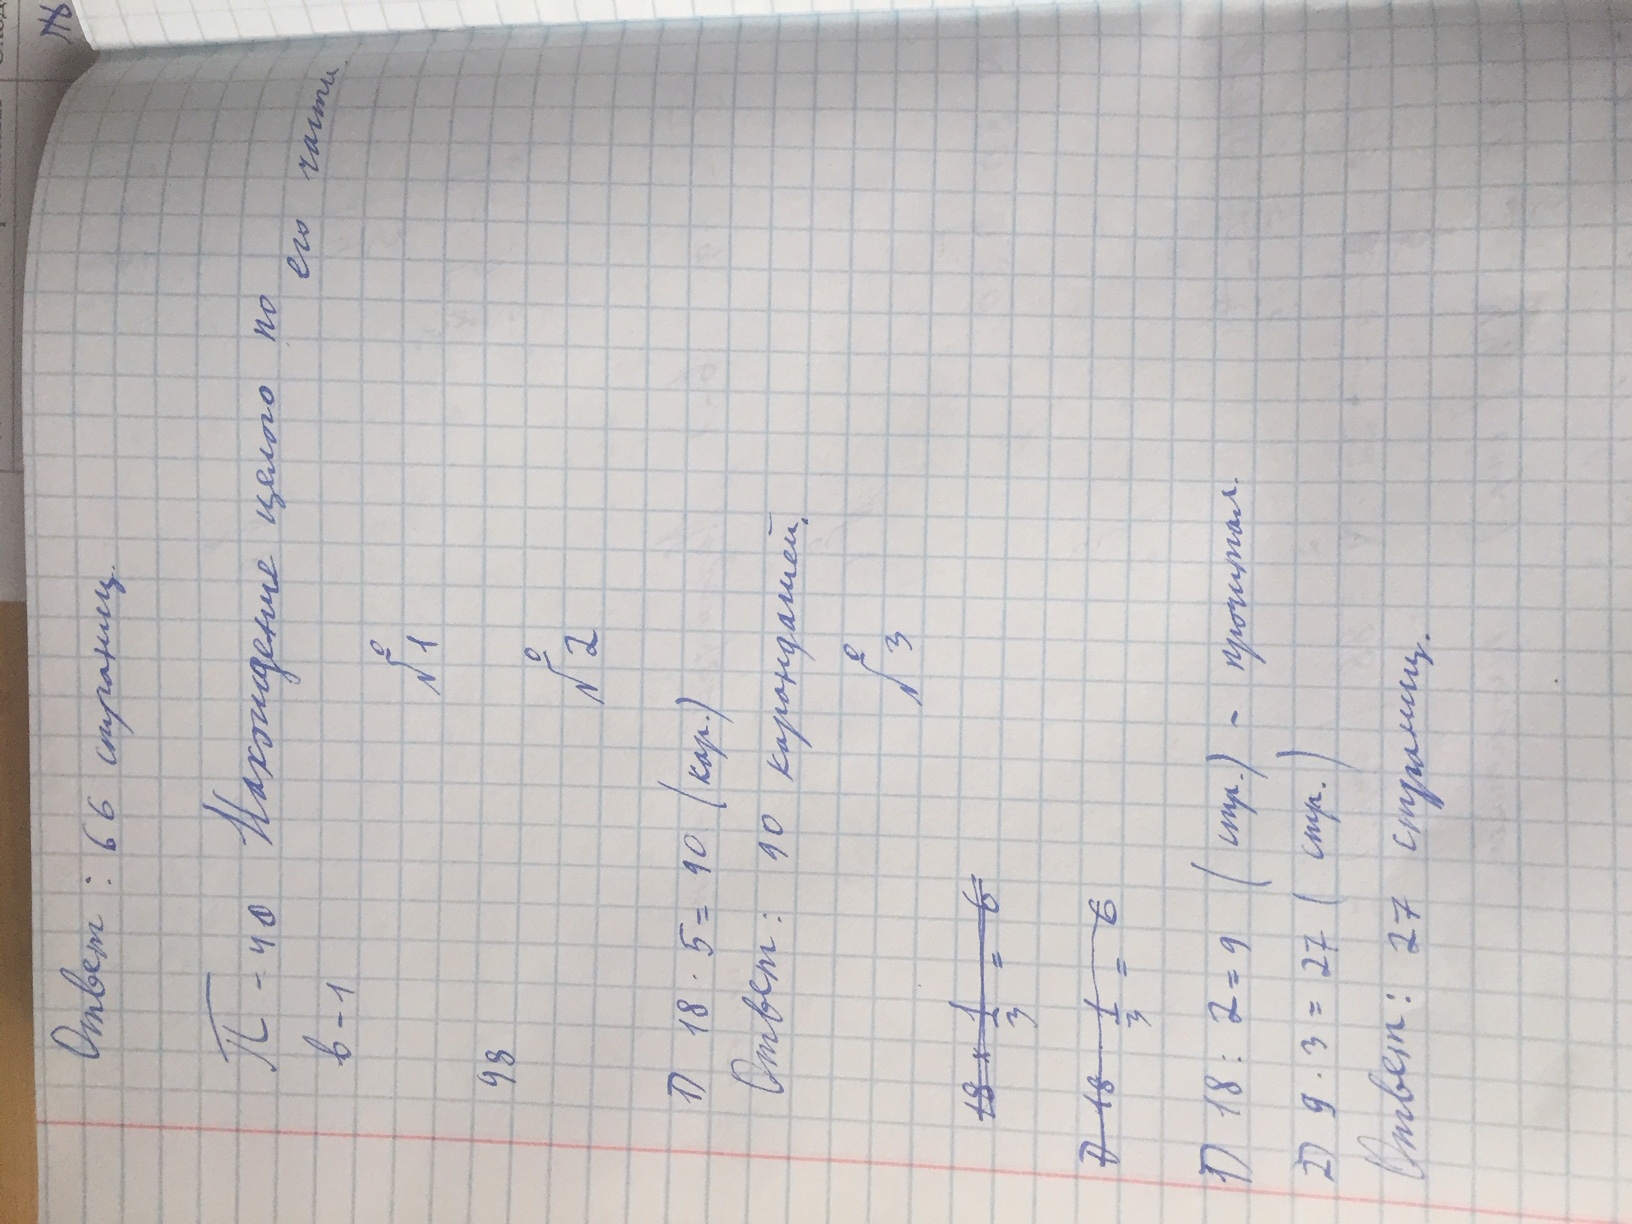 Ответ: 66 страниц.
П-40 Нахождение целого по
его части.
в-1
№1
98
№2
1) 18 · 5 = 90 (кар.)
Ответ: 90 карандашей.
№3
18 × 1/3 = 6
1) 18 1/3 = 6
1) 18 : 2 = 9 (стр.) - прочитал.
2) 9 · 3 = 27 (стр.)
Ответ: 27 страниц.